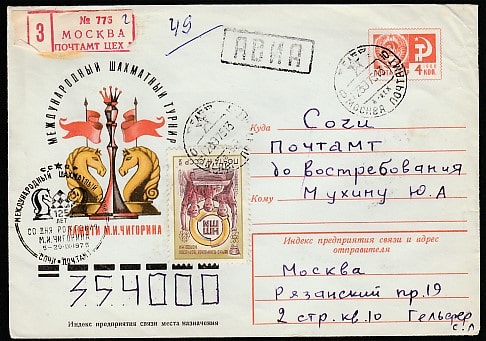 З
№ 773
МОСКВА
ПОЧТАМТ ЦЕХ
2
49
АВИА
МЕЖДУНАРОДНЫЙ ШАХМАТНЫЙ ТУРНИР
ПАМЯТИ М.И.ЧИГОРИНА
ПОЧТА
4 КОП.
МОСКВА
ПОЧТАМТ
МЕЖДУНАРОДНЫЙ ШАХМАТНЫЙ
125
ЛЕТ
СО ДНЯ РОЖДЕНИЯ
М.И.ЧИГОРИНА
СОЧИ ПОЧТАМТ
ПОЧТА СССР
Куда
Сочи
Почтамт
до востребования
Кому
Мухину Ю.А
Индекс предприятия связи и адрес
отправителя
Москва
Рязанский пр.19
2 стр.кв.10 Гельфер
С.Л
354000
Индекс предприятия связи места назначения